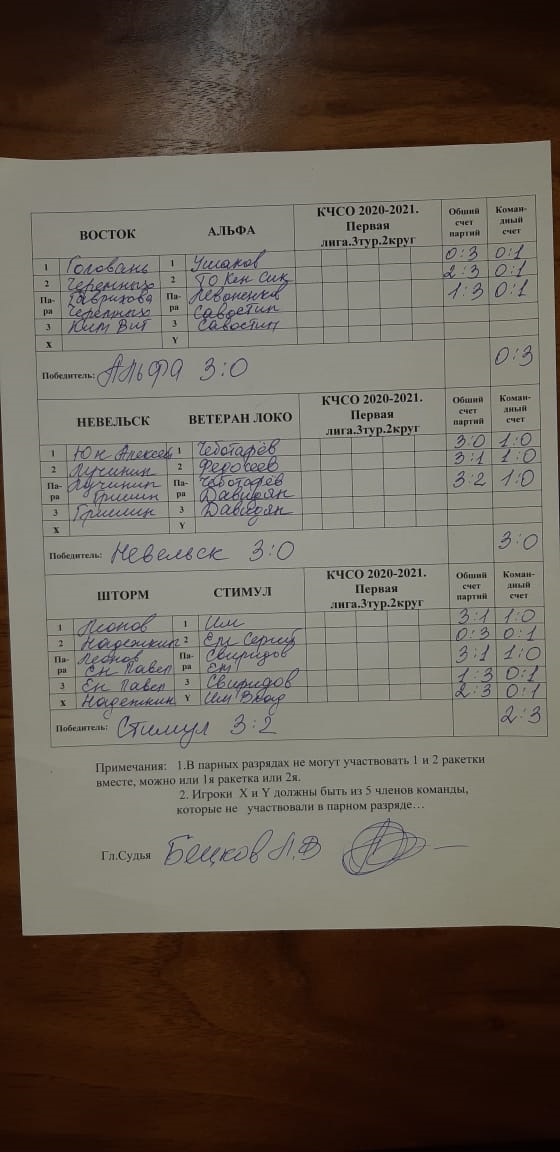 ВОСТОК АЛЬФА КЧСО 2020-2021. Первая лига.3тур.2круг Общий счет партий Коман-дный счет
1 Головань 1 Ушаков 0:3 0:1
2 Черемных 2 ТО Кен Сик 2:3 0:1
Па-ра Гаврикова Черемных Па-ра Левоненков Савостин 1:3 0:1
3 Ким Вит 3 Савостин
X Y
Победитель: Альфа 3:0 0:3
НЕВЕЛЬСК ВЕТЕРАН ЛОКО КЧСО 2020-2021. Первая лига.3тур.2круг Общий счет партий Коман-дный счет
1 Юн Алексей 1 Чеботарёв 3:0 1:0
2 Лучинин 2 Федосеев 3:1 1:0
Па-ра Лучинин Гришин Па-ра Чеботарёв Давидян 3:2 1:0
3 Гришин 3 Давидян
X Y
Победитель: Невельск 3:0 3:0
ШТОРМ СТИМУЛ КЧСО 2020-2021. Первая лига.3тур.2круг Общий счет партий Коман-дный счет
1 Леонов 1 Им 3:1 1:0
2 Надежкин 2 Ем Сергей 0:3 0:1
Па-ра Леонов Ен Павел Па-ра Свиридов Ем 3:1 1:0
3 Ен Павел 3 Свиридов 1:3 0:1
X Надежкин Y Им Влад 2:3 0:1
Победитель: Стимул 3:2 2:3
Примечания: 1.В парных разрядах не могут участвовать 1 и 2 ракетки
вместе, можно или 1я ракетка или 2я.
2. Игроки X и Y должны быть из 5 членов команды,
которые не участвовали в парном разряде…
Гл.Судья Бецков А.В